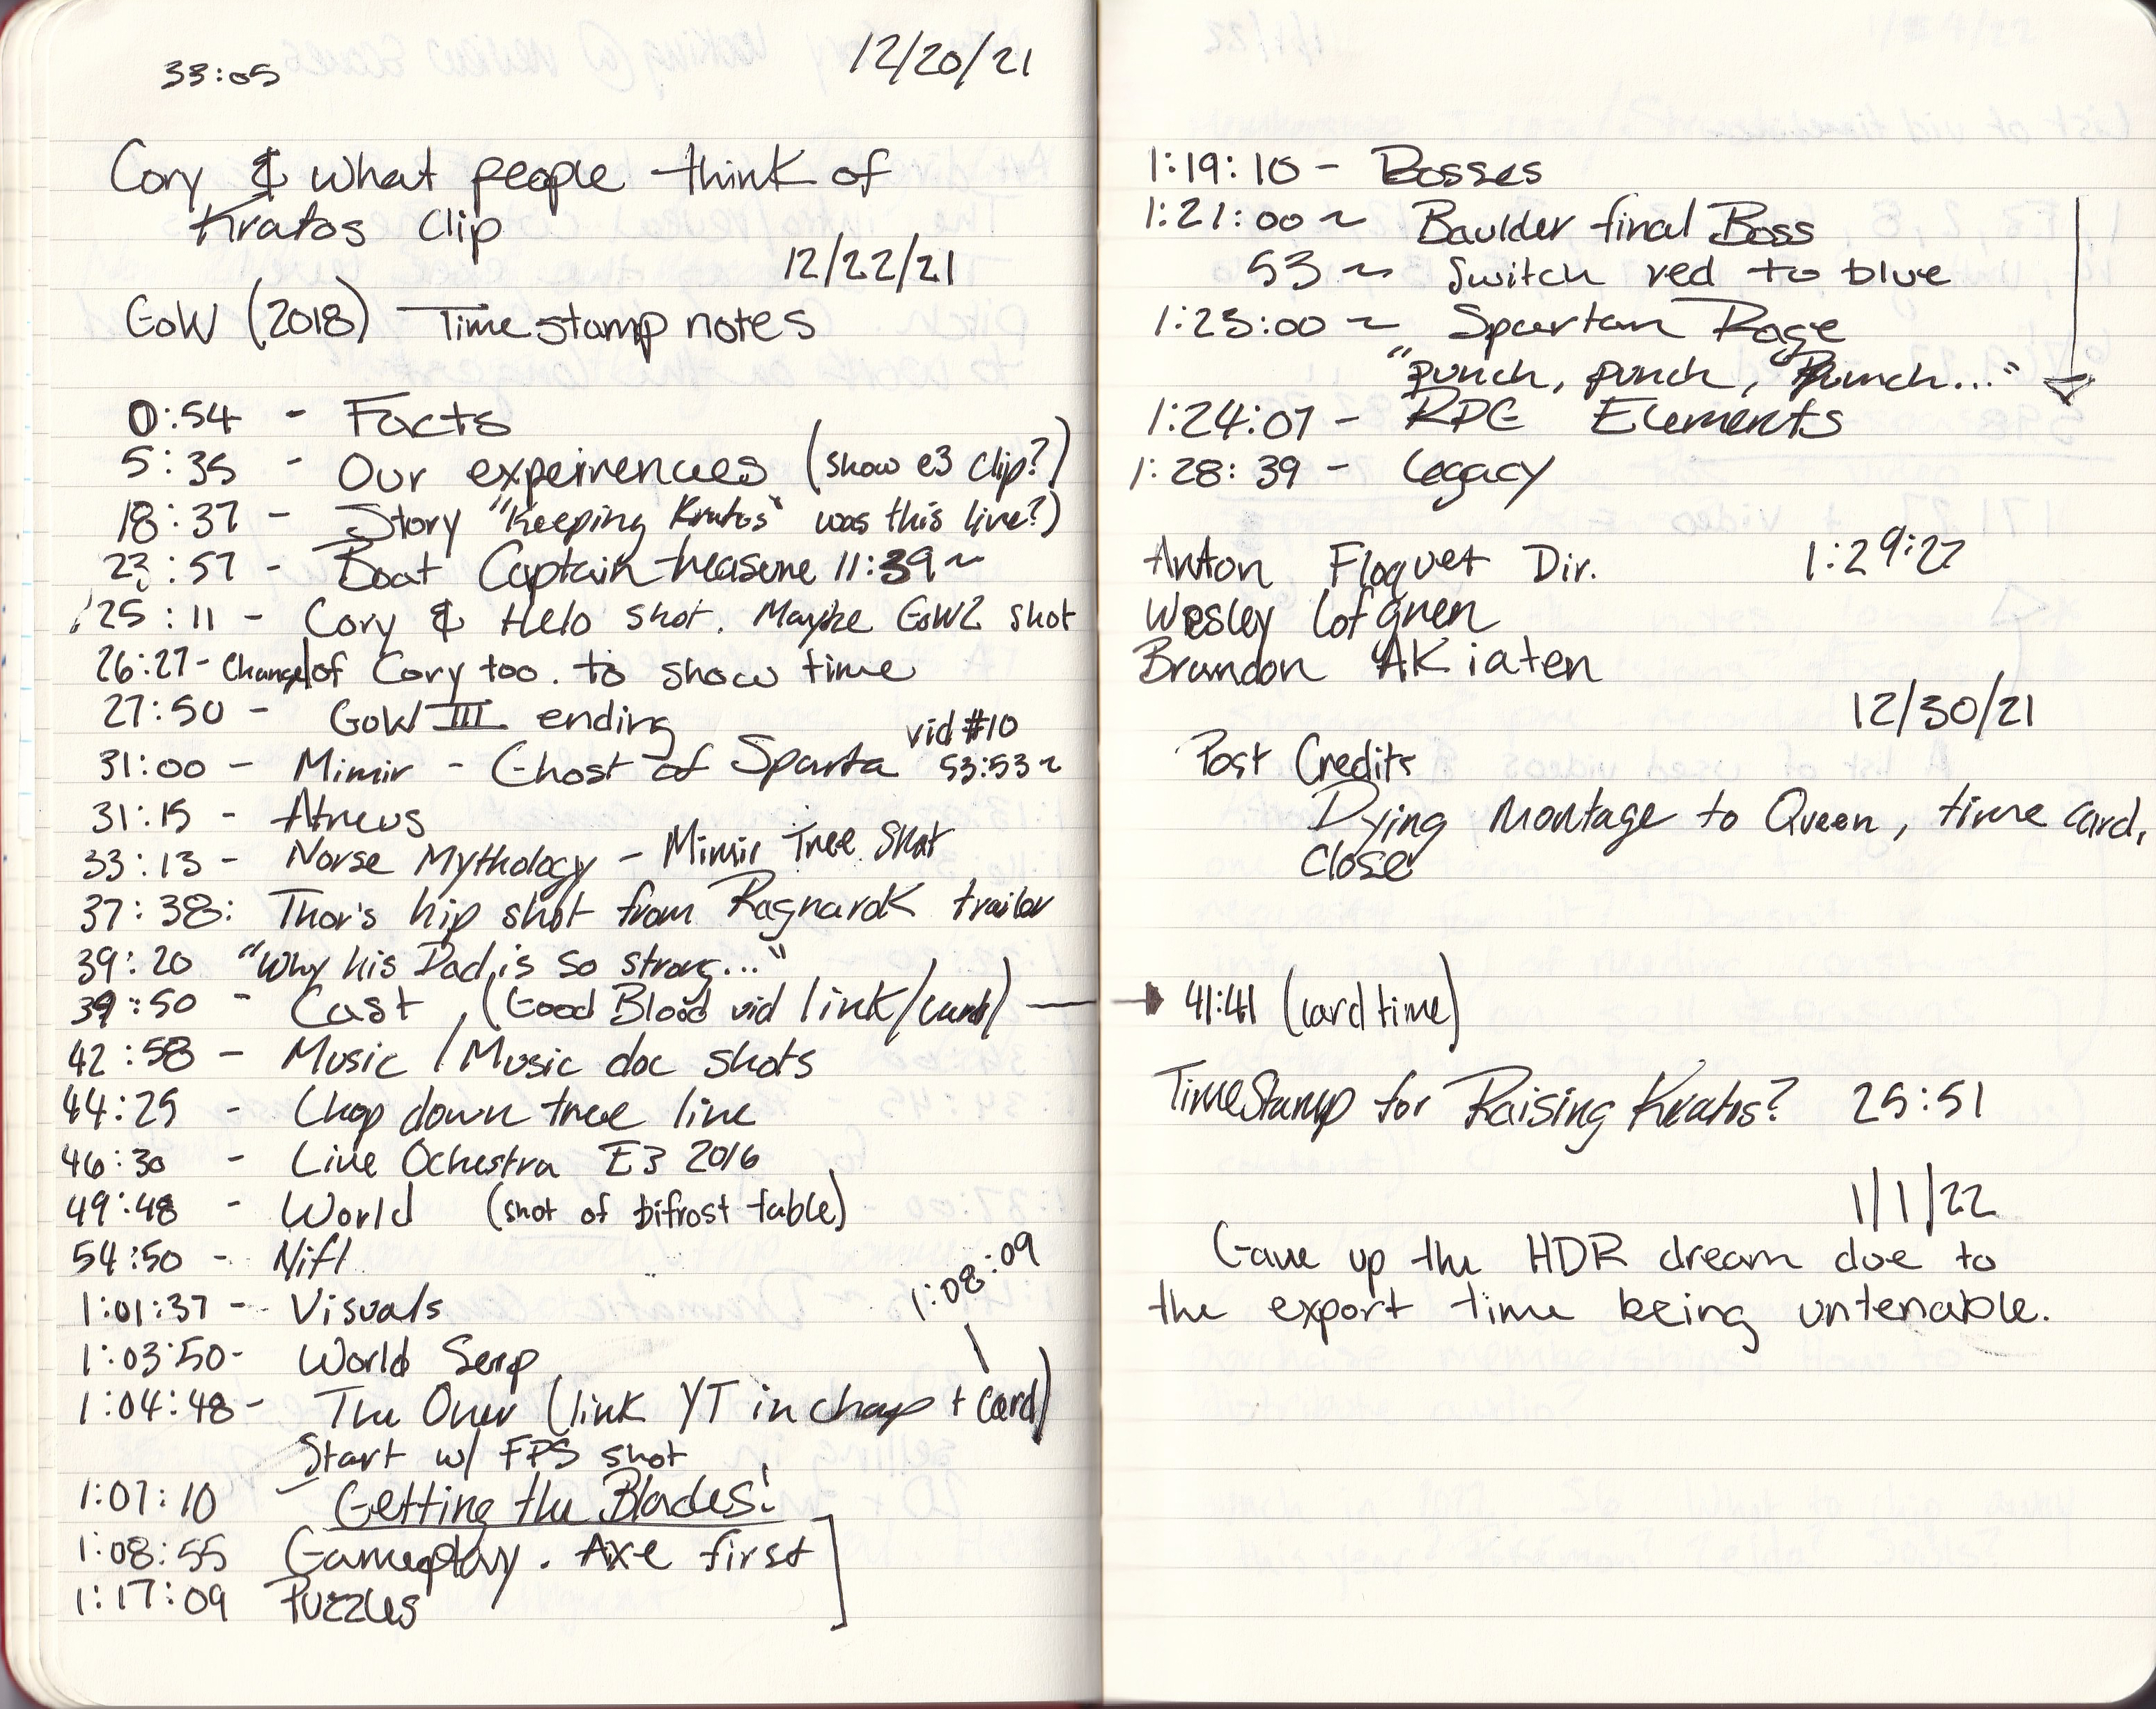 33:05
12/20/21
Cory & what people think of
Kratos Clip
12/22/21
GoW (2018) Timestamp notes
0:54 - Facts
5:35 - Our expeirences (show e3 clip?)
18:37 - Story "Keeping Kratos" was this live?)
23:57 - Boat Captain treasure 11:39~
25:11 - Cory & Helo shot. Maybe GoW2 shot
26:27 - Change of Cory too. to show time
27:50 - GoW III ending
vid #10
31:00 - Mimir - Ghost of Sparta 53:53~
31:15 - Atreus
33:13 - Norse Mythology - Mimir Tree Shot
37:38: Thor's hip shot from Ragnarok trailer
39:20 "Why his Dad is so strong..."
39:50 - Cast, (Good Blood vid link/card)
42:58 - Music / Music doc shots
44:25 - Chop down tree line
46:30 - Live Ochestra E3 2016
49:48 - World (shot of bifrost table)
54:50 - Nifl
1:08:09
1:01:37 - Visuals
1:03:50 - World Serp
1:04:48 - The Oner (link YT in chap + card)
Start w/ FPS shot
1:07:10 - Getting the Blades!
1:08:55 Gameplay. Axe first
1:17:09 Puzzles
1:19:10 - Bosses
1:21:00 ~ Baulder final Boss
53 ~ Switch red to blue
1:23:00 ~ Spartan Rage
"punch, punch, Punch..."
1:24:07 - RPG Elements
1:28:39 - Legacy
Anton Floquet Dir. 1:29:27
Wesley Lofgren
Brandon Akiaten
12/30/21
Post Credits
Dying Montage to Queen, time card,
close
41:41 (card time)
TimeStamp for Raising Kratos? 25:51
1/1/22
Gave up the HDR dream due to
the export time being untenable.